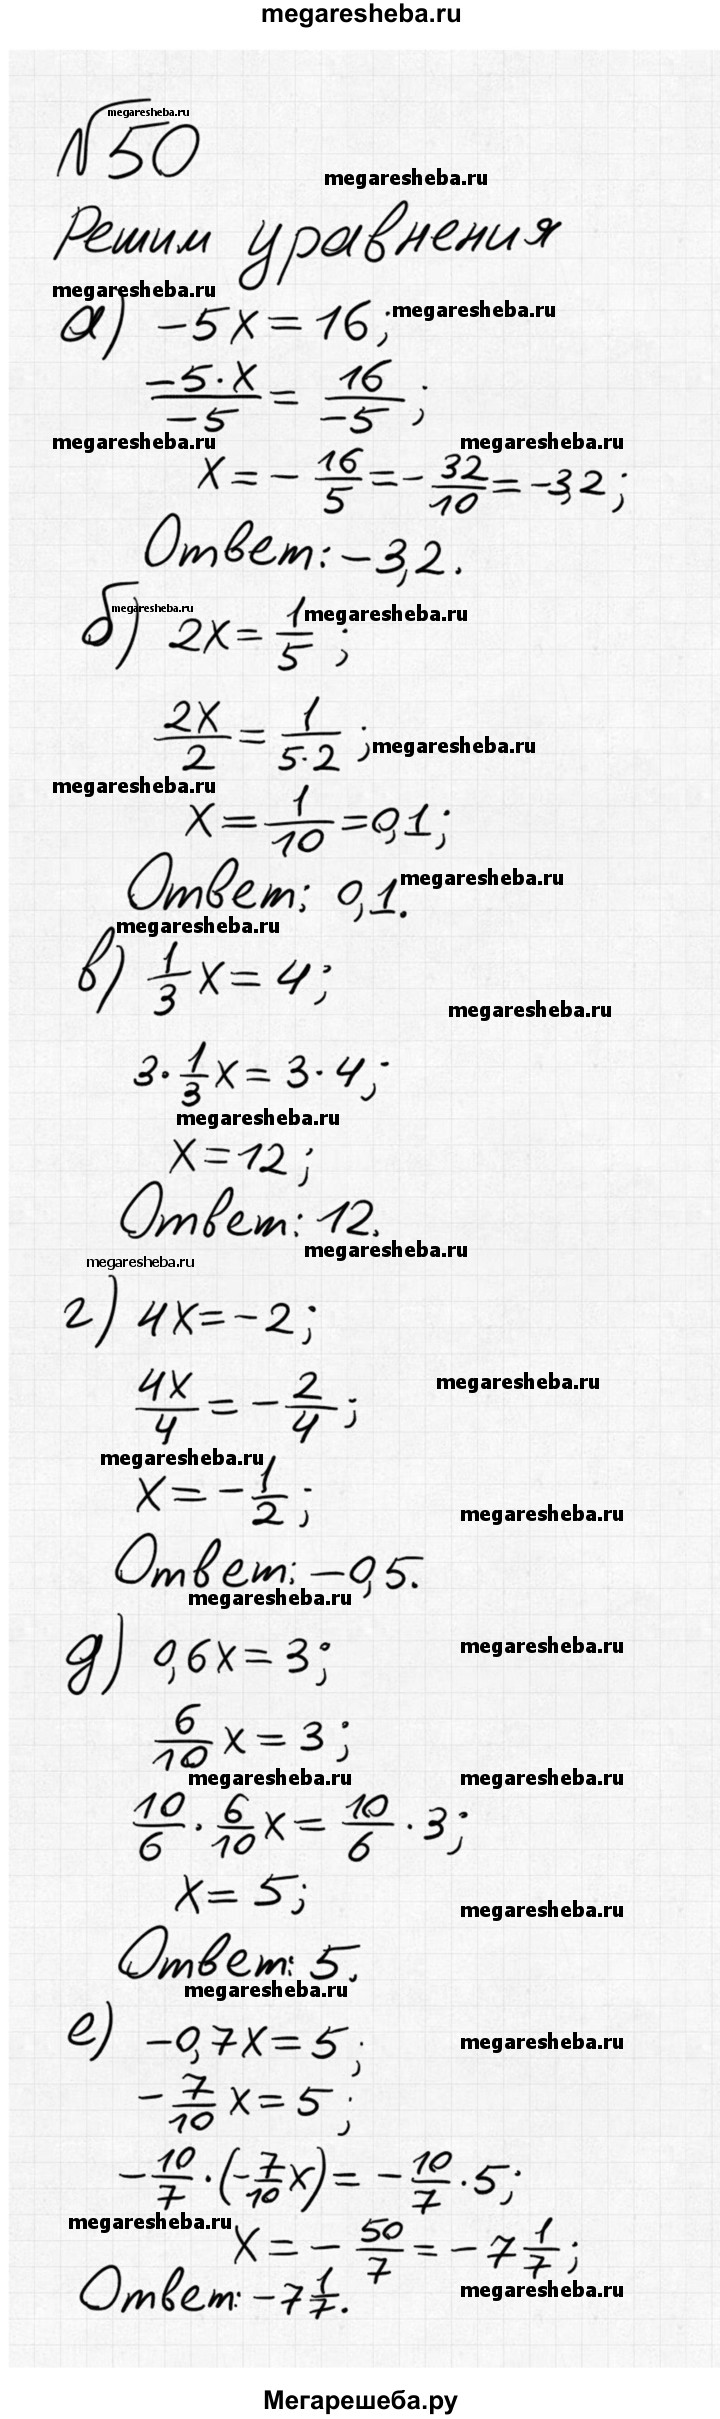 megaresheba.ru
megaresheba.ru
№50
megaresheba.ru
Решим уравнения
megaresheba.ru
а) -5x = 16; megaresheba.ru
-5·x/-5 = 16/-5;
megaresheba.ru megaresheba.ru
x = -16/5 = -32/10 = -3,2;
Ответ: -3,2.
megaresheba.ru megaresheba.ru
б) 2x = 1/5;
2x/2 = 1/5·2; megaresheba.ru
megaresheba.ru
x = 1/10 = 0,1;
Ответ: 0,1. megaresheba.ru
megaresheba.ru
в) 1/3 x = 4;
megaresheba.ru
3·1/3 x = 3·4;
megaresheba.ru
x = 12;
Ответ: 12.
megaresheba.ru
megaresheba.ru
г) 4x = -2;
4x/4 = -2/4; megaresheba.ru
megaresheba.ru
x = -1/2;
megaresheba.ru
Ответ: -0,5.
megaresheba.ru
д) 0,6x = 3; megaresheba.ru
6/10 x = 3;
megaresheba.ru megaresheba.ru
10/6 · 6/10 x = 10/6 · 3;
x = 5;
megaresheba.ru
Ответ: 5.
megaresheba.ru
е) -0,7x = 5; megaresheba.ru
-7/10 x = 5;
-10/7 · (-7/10 x) = -10/7 · 5;
megaresheba.ru
x = -50/7 = -7 1/7;
Ответ: -7 1/7. megaresheba.ru
Мегарешеба.ру